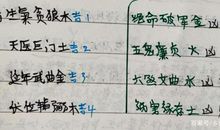 生气贪狼水吉1
天医巨门土吉2
延年武曲金吉3
伏位辅弼木吉4
绝命破军金凶
五鬼廉贞火凶
六煞文曲水凶
祸害禄存土凶